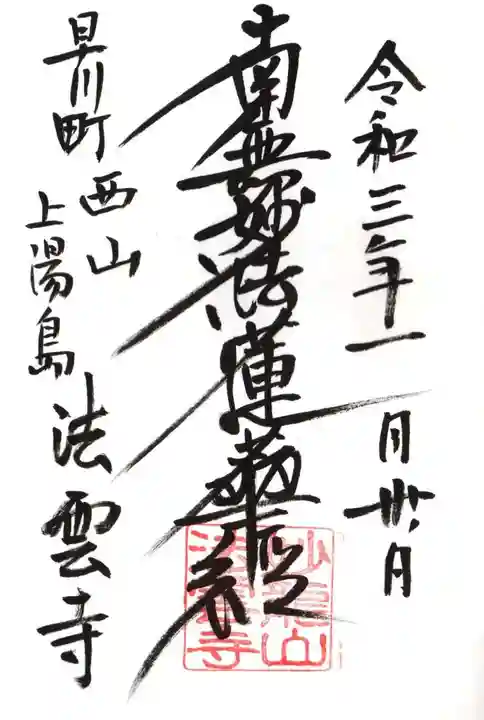 令和三年一月卅日
南無妙法蓮華経
早川町西山
上湯島
法雲寺
妙龍山
法雲寺